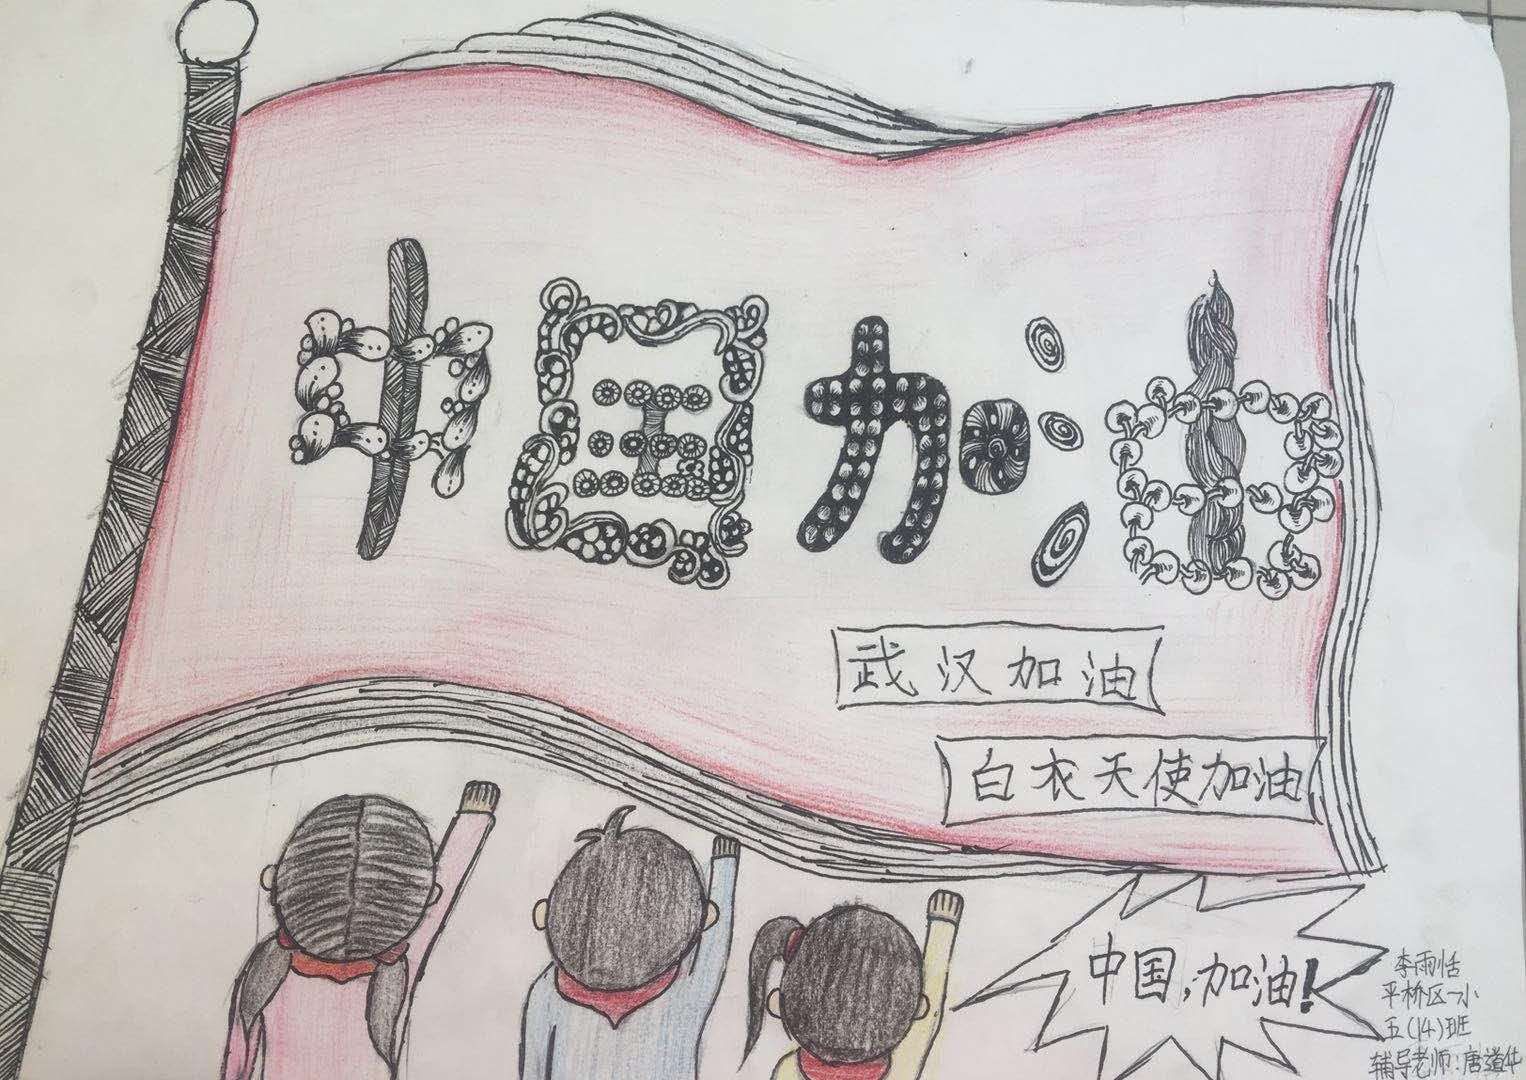 中国加油
武汉加油
白衣天使加油
中国,加油!
李雨恬
平桥区一小
五(14)班
辅导老师:唐道华